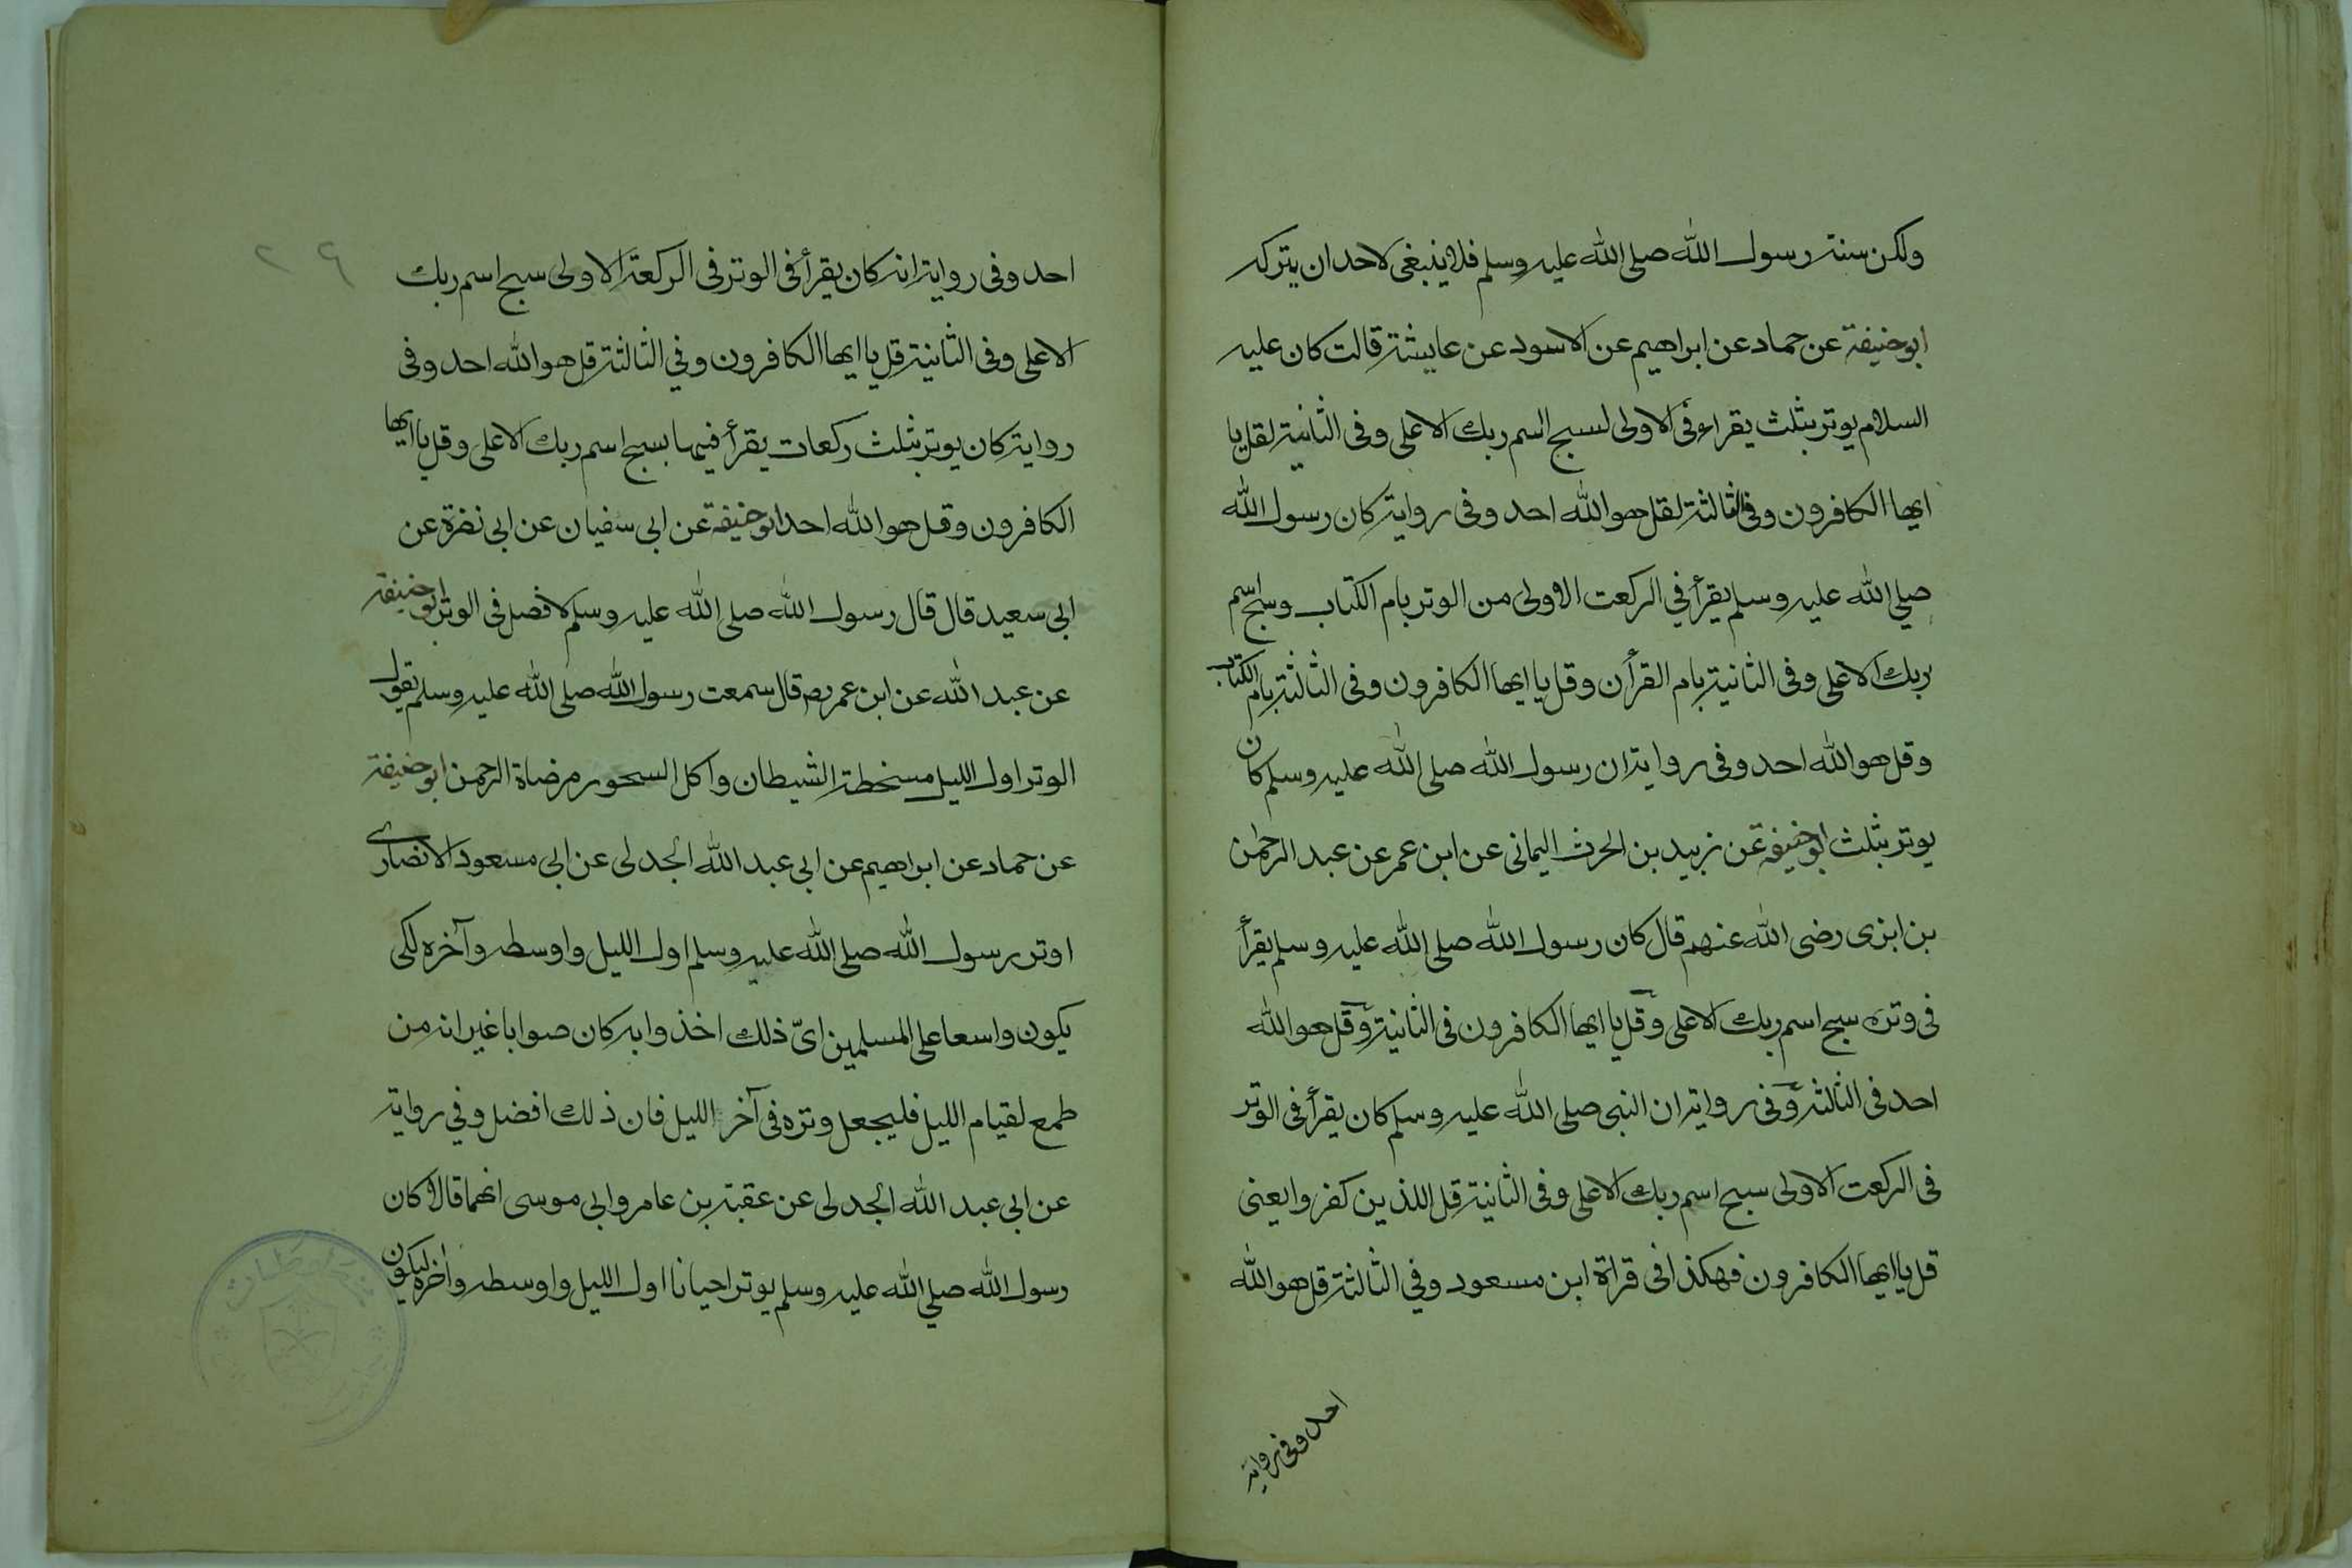 ولكن سنة رسول الله صلى الله عليه وسلم فلا ينبغى لاحد ان يتركه
ابو حنيفة عن حماد عن ابراهيم عن الاسود عن عايشة قالت كان عليه
السلام يوتر بثلث يقراء فى الاولى لسبح اسم ربك الاعلى وفى الثانية لقل يا
ايها الكافرون وفى الثالثة لقل هو الله احد وفى رواية كان رسول الله
صلي الله عليه وسلم يقرأ في الركعت الاولى من الوتر بام الكتاب وسبح اسم
ربك الاعلى وفى الثانية بام القرأن وقل يا ايها الكافرون وفى الثالثة بام الكتاب
وقل هو الله احد وفى رواية ان رسول الله صلى الله عليه وسلم كان
يوتر بثلث ابو حنيفة عن زبيد بن الحرث اليمانى عن ابن عمر عن عبد الرحمن
بن ابزى رضى الله عنهم قال كان رسول الله صلى الله عليه وسلم يقرأ
فى وتره سبح اسم ربك الاعلى وقل يا ايها الكافرون فى الثانية وقل هو الله
احد فى الثالثة وفى رواية ان النبى صلى الله عليه وسلم كان يقرأ فى الوتر
فى الركعت الاولى سبح اسم ربك الاعلى وفى الثانية قل اللذين كفروا يعنى
قل يا ايها الكافرون فهكذا فى قراة ابن مسعود وفي الثالثة قل هو الله
احد وفى رواية
٢٩
احد وفى رواية انه كان يقرأ فى الوتر فى الركعة الاولى سبح اسم ربك
الاعلى وفى الثانية قل يا ايها الكافرون وفي الثالثة قل هو الله احد وفى
رواية كان يوتر بثلث ركعات يقرأ فيها بسبح اسم ربك الاعلى وقل يا ايها
الكافرون وقل هو الله احد ابو حنيفة عن ابى سفيان عن ابى نضرة عن
ابى سعيد قال قال رسول الله صلى الله عليه وسلم لا فصل فى الوتر ابو حنيفة
عن عبد الله عن ابن عمر رضه قال سمعت رسول الله صلى الله عليه وسلم يقول
الوتر اول الليل مسخطة الشيطان واكل السحور مرضاة الرحمن ابو حنيفة
عن حماد عن ابراهيم عن ابى عبد الله الجدلى عن ابى مسعود الانصارى
اوتر رسول الله صلى الله عليه وسلم اول الليل واوسطه وآخره لكى
يكون واسعا على المسلمين اىّ ذلك اخذوا به كان صوابا غير انه من
طمع لقيام الليل فليجعل وتره فى آخر الليل فان ذلك افضل وفي رواية
عن ابى عبد الله الجدلى عن عقبة بن عامر وابى موسى انهما قالا كان
رسول الله صلي الله عليه وسلم يوتر احيانا اول الليل واوسطه واخره ليكون